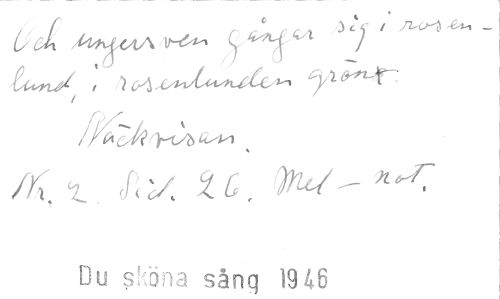 Och ungersven gångar sig i rosen-
lund, i rosenlunden grönt.
Näckvisan.
Nr. 2. Sid. 26. Mel - not.
Du sköna sång 1946